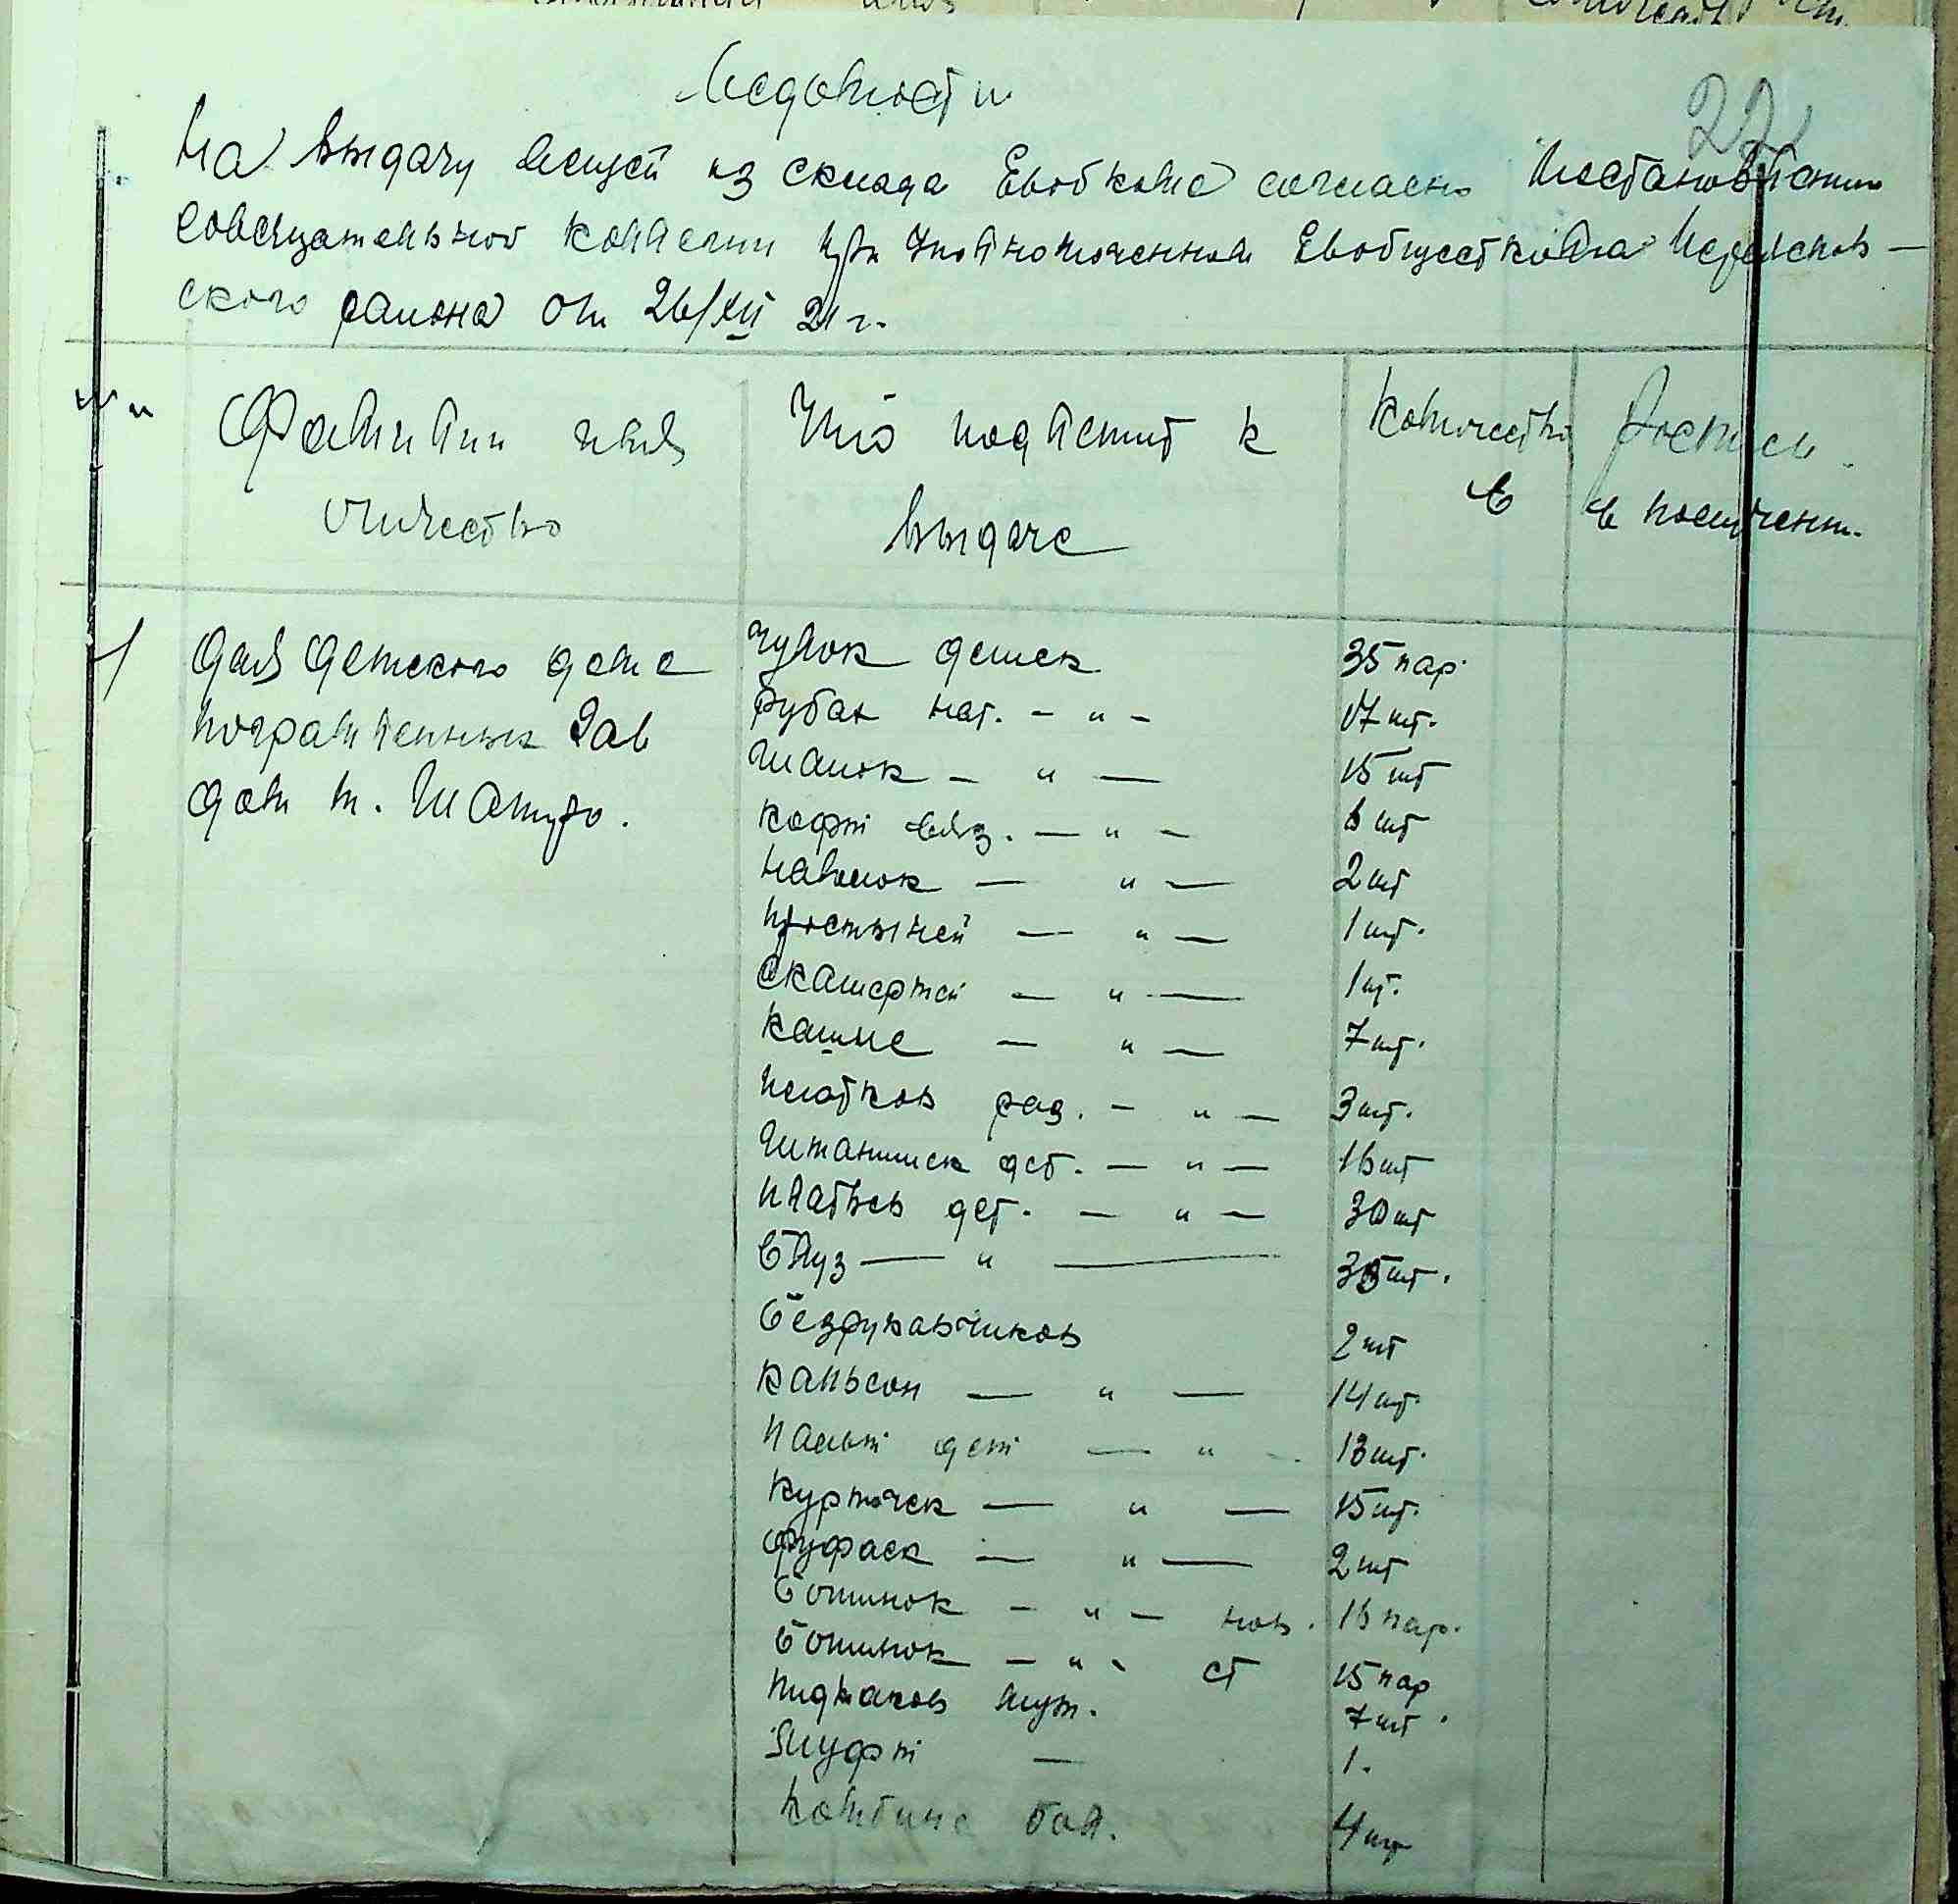 Ведомость
22
На выдачу вещей из склада Евобкома согласно Постановлению
Совещательной Коллегии при Уполномоченном Евобщесткома
ского района от 26/XII 21 г.
№ №
Фамилия имя
отчество
Что подлежит к
выдаче
Количество
в
Роспись
в получении.
1
Для Детского дома
пограмленных Зав
дом т. Шапиро.
Чулок детск
35 пар.
Рубах нат. - " -
17 шт.
Шапок - " -
15 шт
Кофт вяз. - " -
6 шт
Наволок - " -
2 шт
Простыней - " -
1 шт.
Скатертей - " -
1 шт.
Кашне - " -
7 шт.
Платков раз. - " -
3 шт.
Штанишек дет. - " -
16 шт
Платьев дет. - " -
30 шт
Блуз - " -
35 шт.
Безрукавчиков
2 шт
Кальсон - " -
14 шт.
Пальт дет - " -
13 шт.
Курточек - " -
15 шт.
Фуфаек - " -
2 шт
Ботинок - " - нов.
16 пар.
Ботинок - " - ст
15 пар
Пиджаков муж.
7 шт.
Муфт -
1.
Комбине бол.
4 шт